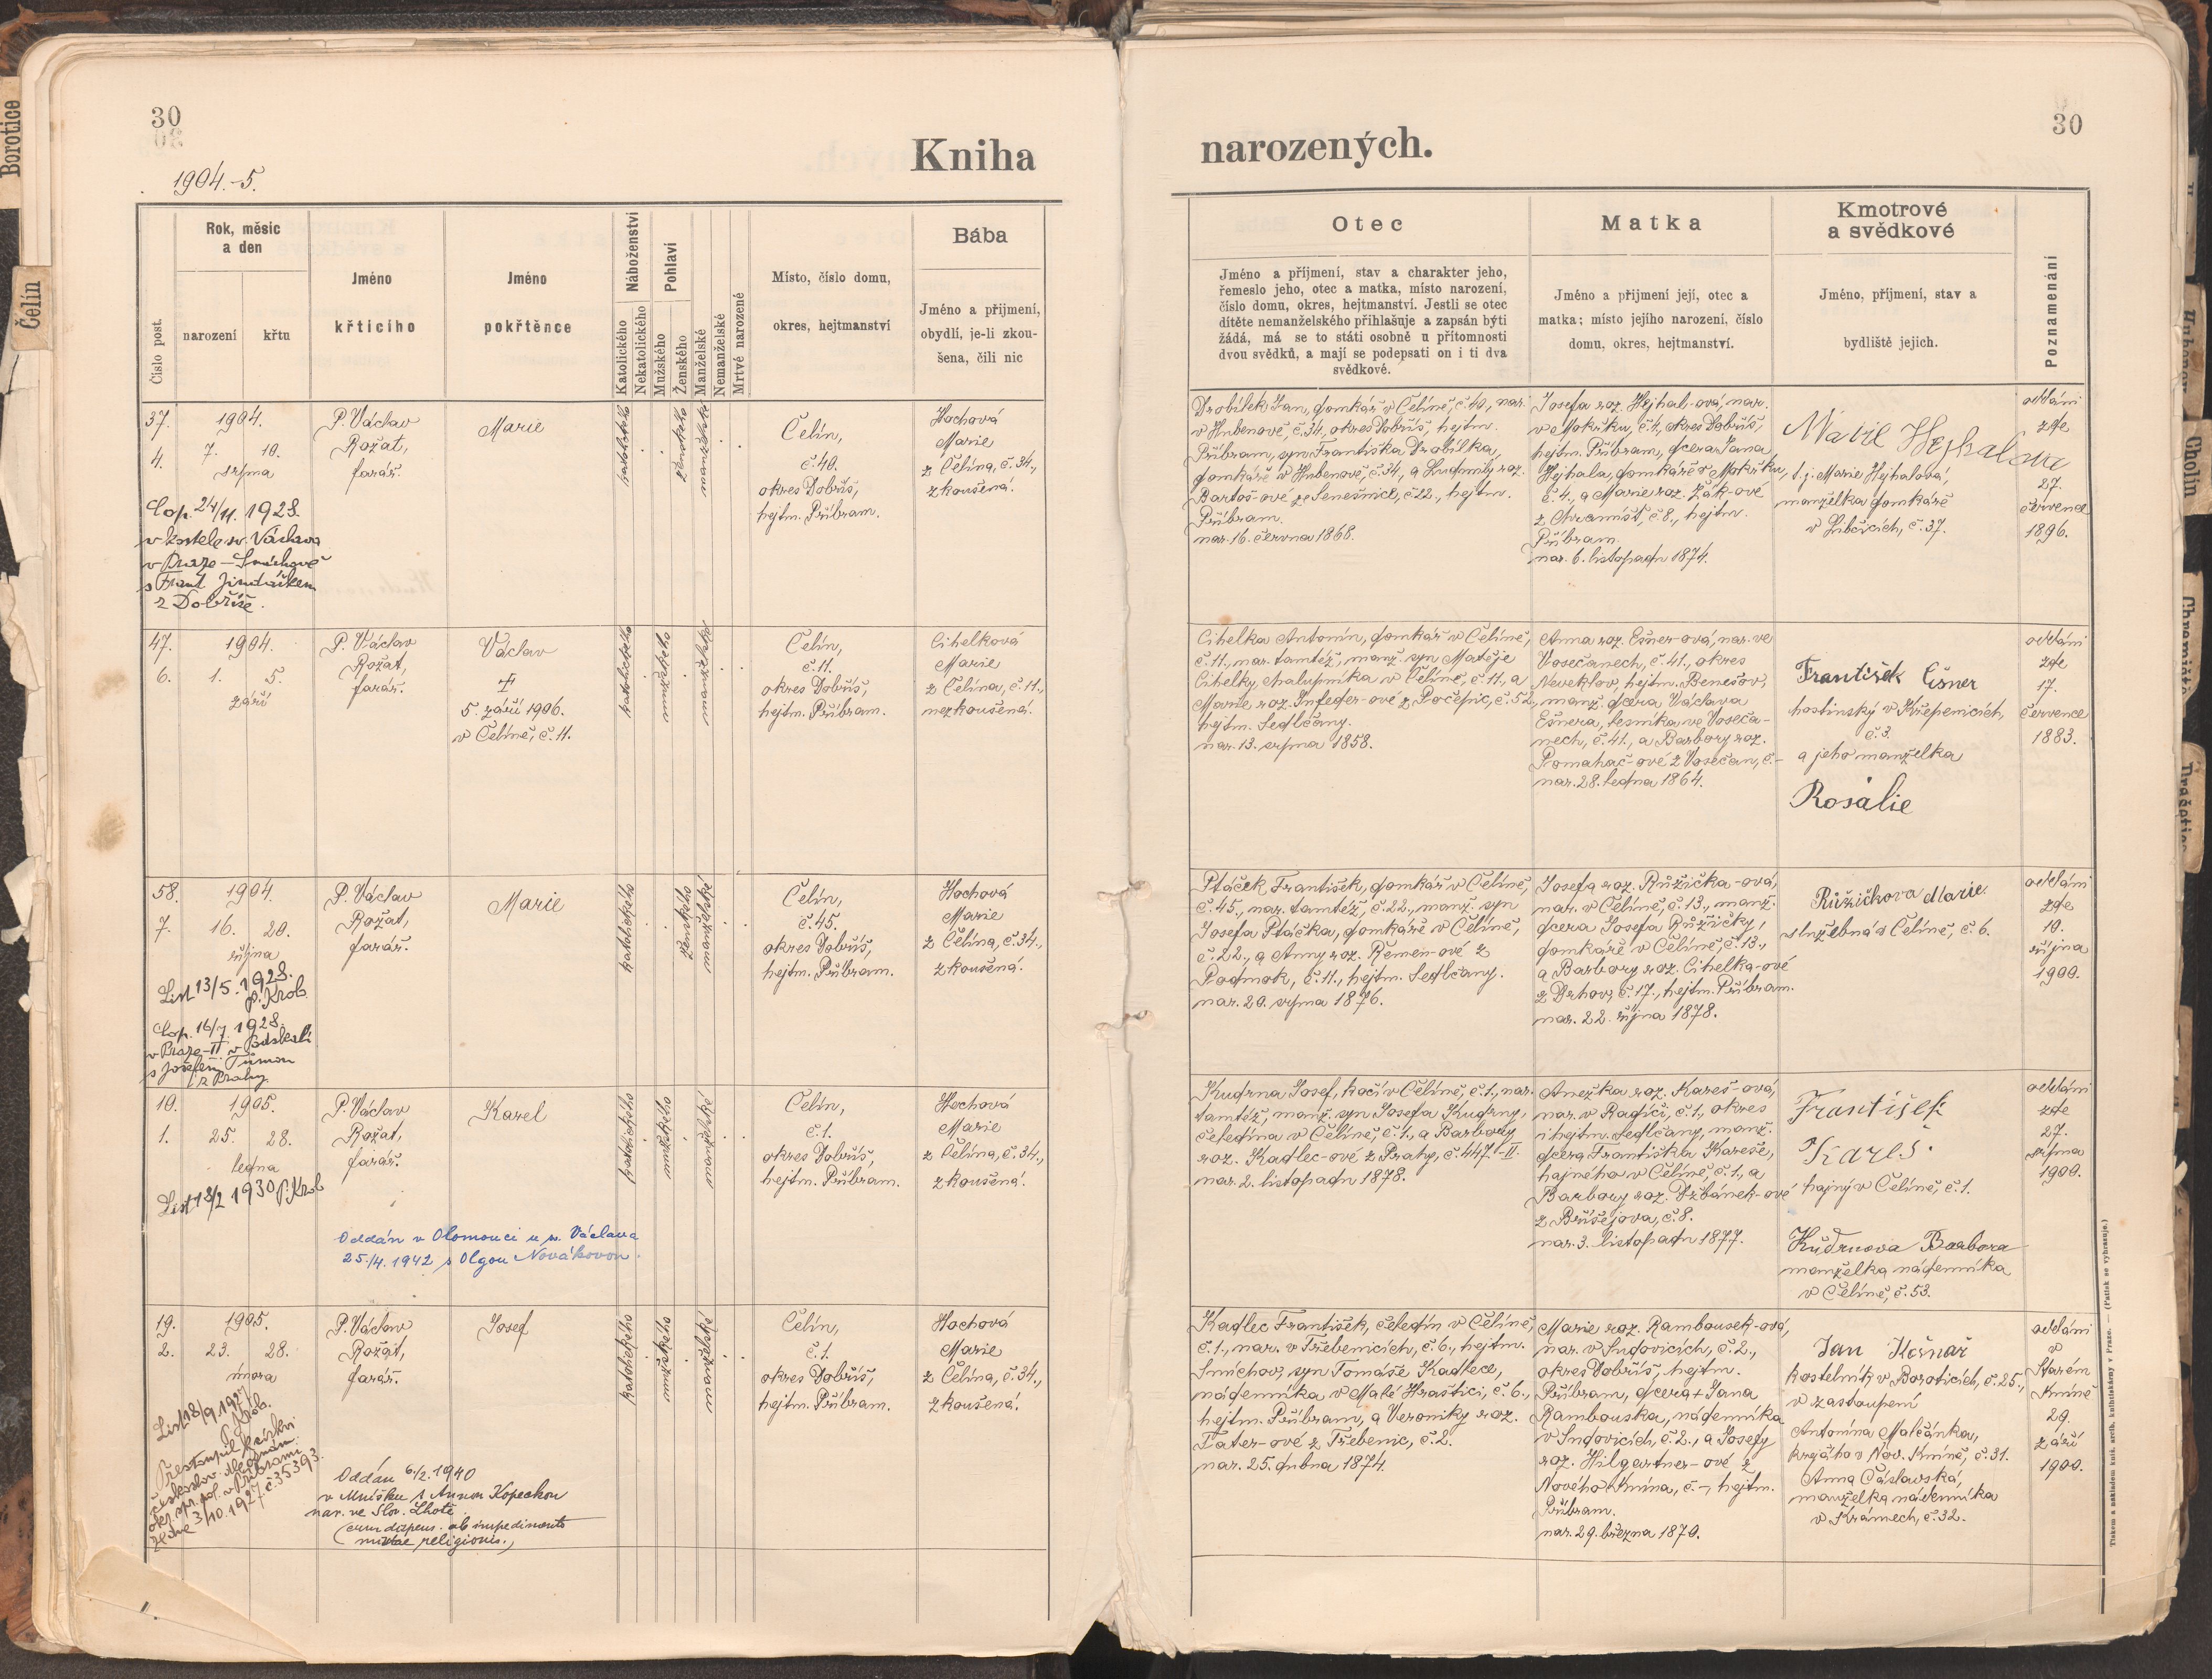 30
Kniha
1904.-5.
Číslo post.
Rok, měsíc
a den
narození
křtu
Jméno
křticího
Jméno
pokřtěnce
Náboženství
Katolického
Nekatolického
Pohlaví
Mužského
Ženského
Manželské
Nemanželské
Mrtvé narozené
Místo, číslo domu,
okres, hejtmanství
Bába
Jméno a přijmení,
obydlí, je-li zkou-
šena, čili nic
37.
4.
1904.
7. 10.
srpna
Cop. 24/11. 1928.
v kostele sv. Václava
v Praze – Smíchově
s Frant. Jindrákem
z Dobříše.
P. Václav
Rožat,
farář.
Marie
katolické
ženského
manželské
Čelín,
č. 40.
okres Dobříš,
hejtm. Příbram.
Hochová
Marie
z Čelína, č. 34.,
zkoušená.
47.
6.
1904.
1. 5.
září
P. Václav
Rožat,
farář.
Václav
†
5. září 1906.
v Čelíně, č. 11.
katolického
mužského
manželské
Čelín,
č. 11.
okres Dobříš,
hejtm. Příbram.
Cihelková
Marie
z Čelína, č. 11.,
nezkoušená.
58.
7.
1904.
16. 20.
října
List 13/5. 1928.
p. Krob
Cop. 16/7. 1928.
v Praze-II. v Podskalí
s Josefem Tůmou
z Prahy.
P. Václav
Rožat,
farář.
Marie
katolického
ženského
manželské
Čelín,
č. 45.
okres Dobříš,
hejtm. Příbram.
Hochová
Marie
z Čelína, č. 34.,
zkoušená.
10.
1.
1905.
25. 28.
ledna
List 18/2 1930 P. Krob
P. Václav
Rožat,
farář.
Karel
Oddán v Olomouci u sv. Václava
25./4. 1942 s Olgou Novákovou.
katolického
mužského
manželské
Čelín,
č. 1.
okres Dobříš,
hejtm. Příbram.
Hochová
Marie
z Čelína, č. 34.,
zkoušená.
19.
2.
1905.
23. 28.
února
List 18/9 1927
P. Krob.
Přestoupil k církvi
českoslov. dle oznám.
okr. spr. pol. v Příbrami
ze dne 3/10. 1927 č. 35393.
P. Václav
Rožat,
farář.
Josef
Oddán 6./2. 1940
v Mníšku s Annou Kopeckou
nar. ve Slov. Lhotě
(cum dispens. ab impedimento
mixtae religionis.)
katolického
mužského
manželské
Čelín,
č. 1.
okres Dobříš,
hejtm. Příbram.
Hochová
Marie
z Čelína, č. 34.,
zkoušená.
30
narozených.
Otec
Jméno a příjmení, stav a charakter jeho,
řemeslo jeho, otec a matka, místo narození,
číslo domu, okres, hejtmanství. Jestli se otec
dítěte nemanželského přihlašuje a zapsán býti
žádá, má se to státi osobně u přítomnosti
dvou svědků, a mají se podepsati on i ti dva
svědkové.
Matka
Jméno a přijmení její, otec a
matka; místo jejího narození, číslo
domu, okres, hejtmanství.
Kmotrové
a svědkové
Jméno, příjmení, stav a
bydliště jejich.
Poznamenání
Drobílek Jan, domkář v Čelíně, č. 40., nar.
v Hubenově, č. 34, okres Dobříš, hejtm.
Příbram, syn Františka Drobílka,
domkáře v Hubenově, č. 34., a Ludmily roz.
Bartoš-ové ze Senešnice, č. 22., hejtm.
Příbram.
nar. 16. června 1868.
Josefa roz. Hejhal-ová, nar.
v Mokřku, č. 4, okres Dobříš,
hejtm. Příbram, dcera Jana
Hejhala, domkáře v Mokřku,
č. 4., a Marie roz. Žák-ové
z Chramišť, č. 8., hejtm.
Příbram.
nar. 6. listopadu 1874.
Marie Hejhalova
t. j. Marie Hejhalová,
manželka domkáře
v Libčicích, č. 37.
oddáni
zde
27.
července
1896.
Cihelka Antonín, domkář v Čelíně,
č. 11., nar. tamtéž, manž. syn Matěje
Cihelky, chalupníka v Čelíně, č. 11., a
Marie, roz. Infeder-ové z Počepic, č. 52.,
hejtm. Sedlčany.
nar. 13. srpna 1858.
Anna roz. Ešner-ová, nar. ve
Vosečanech, č. 41., okres
Neveklov, hejtm. Benešov,
manž. dcera Václava
Ešnera, lesníka ve Voseča-
nech, č. 41., a Barbory roz.
Pomahač-ové z Vosečan, č. -
nar. 28. ledna 1864.
František Ešner
hostinský v Křepenicích,
č. 3.
a jeho manželka
Rosalie
oddáni
zde
17.
července
1883.
Ptáček František, domkář v Čelíně,
č. 45., nar. tamtéž, č. 22., manž. syn
Josefa Ptáčka, domkáře v Čelíně,
č. 22., a Anny roz. Řemen-ové z
Podmok, č. 11., hejtm. Sedlčany.
nar. 20. srpna 1876.
Josefa roz. Růžička-ová,
nar. v Čelíně, č. 13., manž.
dcera Josefa Růžičky,
domkáře v Čelíně, č. 13.,
a Barbory roz. Cihelka-ové
z Drhov, č. 17., hejtm. Příbram.
nar. 22. října 1878.
Růžičkova Marie
služebná v Čelíně, č. 6.
oddáni
zde
10.
října
1900.
Kudrna Josef, kočí v Čelíně, č. 1., nar.
tamtéž, manž. syn Josefa Kudrny,
čeledína v Čelíně, č. 1., a Barbory
roz. Kadlec-ové z Prahy, č. 447.-II.
nar. 2. listopadu 1878.
Anežka roz. Kareš-ová,
nar. v Radíči, č. 1., okres
i hejtm. Sedlčany, manž.
dcera Františka Kareše,
hajného v Čelíně, č. 1., a
Barbory roz. Džbánek-ové
z Bříšejova, č. 8.
nar. 3. listopadu 1877.
František
Kareš
hajný v Čelíně, č. 1.
Kudrnova Barbora
manželka nádenníka
v Čelíně, č. 53.
oddáni
zde
27.
srpna
1900.
Kadlec František, čeledín v Čelíně,
č. 1., nar. v Třebenicích, č. 6., hejtm.
Smíchov, syn Tomáše Kadlece,
nádenníka v Malé Hraštici, č. 6.,
hejtm. Příbram, a Veroniky roz.
Fater-ové z Třebenic, č. 2.
nar. 25. dubna 1874.
Marie roz. Rambousek-ová,
nar. v Sudovicích, č. 2.,
okres Dobříš, hejtm.
Příbram, dcera † Jana
Rambouska, nádenníka
v Sudovicích, č. 2., a Josefy
roz. Hilgertner-ové z
Nového Knína, č. -, hejtm.
Příbram.
nar. 29. března 1870.
Jan Košnař
kostelník v Boroticích, č. 25.,
v zastoupení
Antonína Malčánka,
krejčího v Nov. Kníně, č. 31.
Anna Čáslavská,
manželka nádenníka
v Krámech, č. 32.
oddáni
v
Starém
Kníně
29.
září
1900.
Tiskem a nákladem kníž. arcib. knihtiskárny v Praze. — (Patisk se vyhrazuje.)
Borotice
Čelín
Cholín
Chramiště
Drážetice